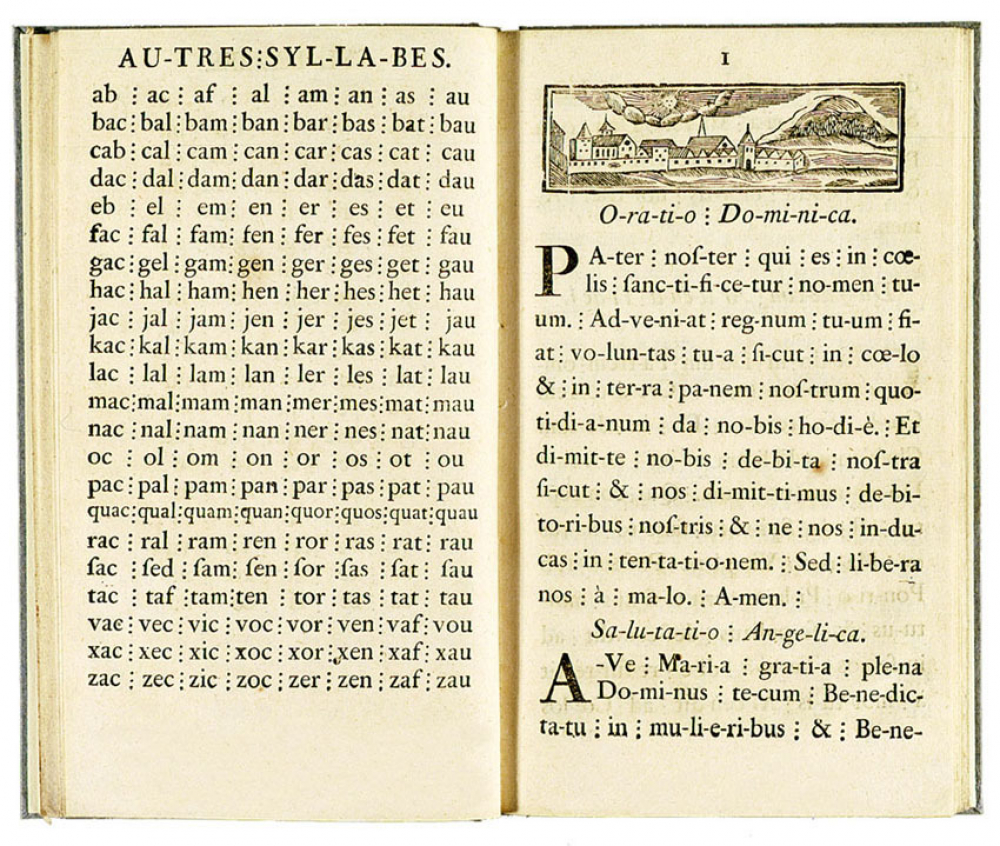 AU-TRES⁝SYL-LA-BES.
ab ⁝ ac ⁝ af ⁝ al ⁝ am ⁝ an ⁝ as ⁝ au
bac⁝bal⁝bam⁝ban⁝bar⁝bas⁝bat⁝bau
cab⁝cal⁝cam⁝can⁝car⁝cas⁝cat⁝cau
dac⁝dal⁝dam⁝dan⁝dar⁝das⁝dat⁝dau
eb ⁝ el ⁝ em⁝ en ⁝ er ⁝ es ⁝ et ⁝ eu
fac⁝fal⁝fam⁝fen⁝fer⁝fes⁝fet⁝fau
gac⁝gel⁝gam⁝gen⁝ger⁝ges⁝get⁝gau
hac⁝hal⁝ham⁝hen⁝her⁝hes⁝het⁝hau
jac⁝jal⁝jam⁝jen⁝jer⁝jes⁝jet⁝jau
kac⁝kal⁝kam⁝kan⁝kar⁝kas⁝kat⁝kau
lac⁝lal⁝lam⁝lan⁝ler⁝les⁝lat⁝lau
mac⁝mal⁝mam⁝man⁝mer⁝mes⁝mat⁝mau
nac⁝nal⁝nam⁝nan⁝ner⁝nes⁝nat⁝nau
oc ⁝ ol ⁝ om ⁝ on ⁝ or ⁝ os ⁝ ot ⁝ ou
pac⁝pal⁝pam⁝pan⁝par⁝pas⁝pat⁝pau
quac⁝qual⁝quam⁝quan⁝quor⁝quos⁝quat⁝quau
rac⁝ral⁝ram⁝ren⁝ror⁝ras⁝rat⁝rau
ſac⁝ſed⁝ſam⁝ſen⁝ſor⁝ſas⁝ſat⁝ſau
tac⁝taf⁝tam⁝ten⁝tor⁝tas⁝tat⁝tau
vae⁝vec⁝vic⁝voc⁝vor⁝ven⁝vaf⁝vou
xac⁝xec⁝xic⁝xoc⁝xor⁝xen⁝xaf⁝xau
zac⁝zec⁝zic⁝zoc⁝zer⁝zen⁝zaf⁝zau
I
O-ra-ti-o ⁝ Do-mi-ni-ca.
PA-ter ⁝ noſ-ter ⁝ qui ⁝ es ⁝ in ⁝ cœ-
lis ⁝ ſanc-ti-fi-ce-tur ⁝ no-men ⁝ tu-
um. ⁝ Ad-ve-ni-at ⁝ reg-num ⁝ tu-um ⁝ fi-
at ⁝ vo-lun-tas ⁝ tu-a ⁝ ſi-cut ⁝ in ⁝ cœ-lo
& ⁝ in ⁝ ter-ra ⁝ pa-nem ⁝ noſ-trum ⁝ quo-
ti-di-a-num ⁝ da ⁝ no-bis ⁝ ho-di-è. ⁝ Et
di-mit-te ⁝ no-bis ⁝ de-bi-ta ⁝ noſ-tra
ſi-cut ⁝ & ⁝ nos ⁝ di-mit-ti-mus ⁝ de-bi-
to-ri-bus ⁝ noſ-tris ⁝ & ⁝ ne ⁝ nos ⁝ in-du-
cas ⁝ in ⁝ ten-ta-ti-o-nem. ⁝ Sed ⁝ li-be-ra
nos ⁝ à ⁝ ma-lo. ⁝ A-men. ⁝
Sa-lu-ta-ti-o ⁝ An-ge-li-ca.
A-Ve ⁝ Ma-ri-a ⁝ gra-ti-a ⁝ ple-na
Do-mi-nus ⁝ te-cum ⁝ Be-ne-dic-
ta-tu ⁝ in ⁝ mu-li-e-ri-bus ⁝ & ⁝ Be-ne-